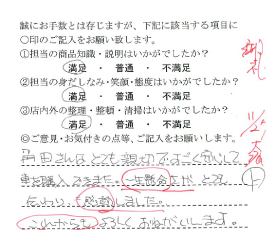 誠にお手数とは存じますが、下記に該当する項目に
○印のご記入をお願い致します。
①担当の商品知識・説明はいかがでしたか？
満足 ・ 普通 ・ 不満足
②担当の身だしなみ・笑顔・態度はいかがでしたか？
満足 ・ 普通 ・ 不満足
③店内外の整理・整頓・清掃はいかがでしたか？
満足 ・ 普通 ・ 不満足
◎ご意見・お気付きの点等、ご記入をお願いします。
さんはとても親切ですごく安心して
車を購入できました。
しました。
これからもよろしくおねがいします。